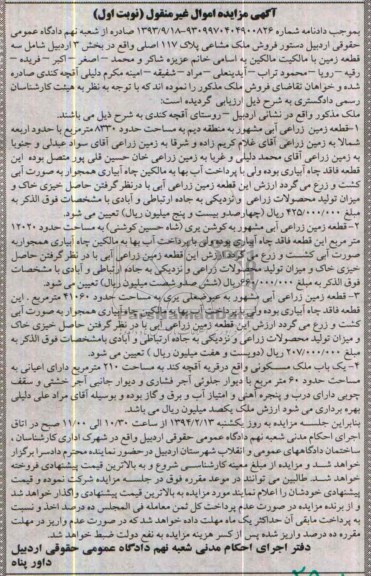 آگهی مزایده اموال غیرمنقول (نوبت اول)
بموجب دادنامه شماره ۹۳۰۹۹۷۰۴۰۴۹۰۰۸۲۶-۱۳۹۳/۹/۱۸ صادره از شعبه نهم دادگاه عمومی
حقوقی اردبیل دستور فروش ملک مشاعی پلاک ۱۱۷ اصلی واقع در بخش ۳ اردبیل شامل سه
قطعه زمین با مالکیت مالکین به اسامی خانم عزیزه شاکر و محمد – اصغر – اکبر – فریده –
رقیه – رویا – محمود تراب – آیدینعلی – مراد – شفیقه – امینه مکرم دلیلی آقچه کندی صادره
شده و خواهان تقاضای فروش ملک مذکور را نموده اند که با توجه به نظر به هیئت کارشناسان
رسمی دادگستری به شرح ذیل ارزیابی گردیده است:
ملک مذکور واقع در نشانی اردبیل – روستای آقچه کندی به شرح ذیل می باشند.
۱-قطعه زمین زراعی آبی مشهور به منطقه دیم به مساحت حدود ۸۳۳۰ مترمربع با حدود اربعه
شمالا به زمین زراعی آقای غلام کریم زاده و شرقا به زمین زراعی آقای سواد عبدلی و جنوبا
به زمین زراعی آقای محمد دلیلی و غربا به زمین زراعی خان حسین قلی پور متصل بوده این
قطعه فاقد چاه آبیاری بوده ولی با پرداخت آب بها به مالکین چاه آبیاری همجوار به صورت آبی
کشت و زرع می گردد ارزش این قطعه زمین زراعی آبی با درنظر گرفتن حاصل خیزی خاک و
میزان تولید محصولات زراعی و نزدیکی به جاده ارتباطی و آبادی با مشخصات فوق الذکر به
مبلغ ۴۲۵/۰۰۰/۰۰۰ ریال (چهارصد و بیست و پنج میلیون ریال) تعیین می شود.
۲- قطعه زمین زراعی آبی مشهور به کوشن یری (شاه حسین کوشنی) به مساحت حدود ۱۲۰۲۰
متر مربع این قطعه فاقد چاه آبیاری بوده ولی با پرداخت آب بها به مالکین چاه آبیاری همجوار به
صورت آبی کشت و زرع می گردد ارزش این قطعه زمین زراعی آبی با در نظر گرفتن حاصل
خیزی خاک و میزان تولید محصولات زراعی و نزدیکی به جاده ارتباطی و آبادی با مشخصات
فوق الذکر به مبلغ ۶۶۰/۰۰۰/۰۰۰ ریال (شش صد و شصت میلیون ریال) تعیین می شود.
۳- قطعه زمین زراعی آبی مشهور به عیوضعلی یری به مساحت حدود ۴۱۰۶۰ مترمربع . این
قطعه فاقد چاه آبیاری بوده ولی با پرداخت آب بها به مالکین چاه آبیاری همجوار به صورت آبی
کشت و زرع می گردد ارزش این قطعه زمین زراعی آبی با در نظر گرفتن حاصل خیزی خاک
و میزان تولید محصولات زراعی و نزدیکی به جاده ارتباطی و آبادی بامشخصات فوق الذکر به
مبلغ ۲۰۷/۰۰۰/۰۰۰ ریال (دویست و هفت میلیون ریال ) تعیین می شود.
۴- یک باب ملک مسکونی واقع درقریه آقچه کند به مساحت ۲۱۰ مترمربع دارای اعیانی به
مساحت حدود ۶۰ متر مربع با دیوار جلوئی آجر فشاری و دیوار جانبی آجر خشتی و سقف
چوبی دارای درب و پنجره آهنی و امتیاز آب و برق و گاز بوده و بوسیله آقای مراد علی دلیلی
بهره برداری می شود ارزش ملک یکصد میلیون ریال می باشد.
بنابراین جلسه مزایده به روز یکشنبه ۱۳۹۴/۲/۱۳ از ساعت ۱۰/۳۰ الی ۱۱/۰۰ صبح در اتاق
اجرای احکام مدنی شعبه نهم دادگاه عمومی حقوقی اردبیل واقع در شهرک اداری کارشناسان ،
ساختمان دادگاههای عمومی و انقلاب شهرستان اردبیل در حضور نماینده محترم دادسرا برگزار
خواهد شد و مزایده از مبلغ معینه کارشناسی شروع و به بالاترین قیمت پیشنهادی فروخته
خواهد شد. طالبین می توانند در موعد مقرره فوق در جلسه مزایده شرکت نموده و قیمت
پیشنهادی خودشان را اعلام نمایند مورد مزایده به بالاترین قیمت پیشنهادی واگذار خواهد شد
و از برنده مزایده در صورت عدم پرداخت کل ثمن معامله فی المجلس ده درصد اخذ و نسبت
به پرداخت مابقی آن حداکثر یک ماه مهلت داده خواهد شد که در صورت عدم واریز در مهلت
مقرره ده درصد واریز شده پس از کسر هزینه مزایده به نفع دولت ضبط خواهد شد.
دفتر اجرای احکام مدنی شعبه نهم دادگاه عمومی حقوقی اردبیل
داور پناه